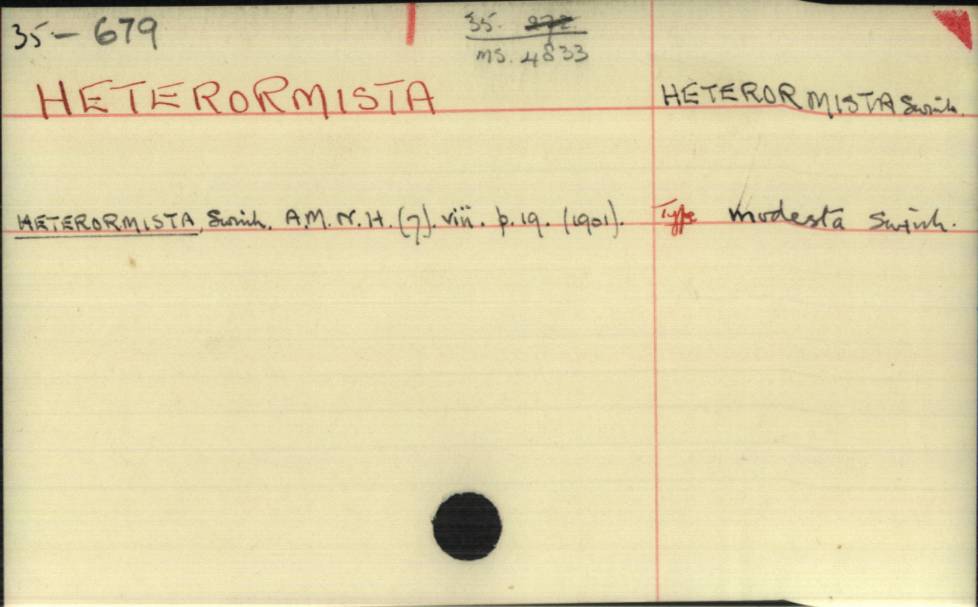 35-679
35. 272.
ms. 4833
HETERORMISTA
HETERORMISTA Swinh.
HETERORMISTA, Swinh. A.M.N.H. (7). viii. p. 19. (1901).
Type modesta Swinh.